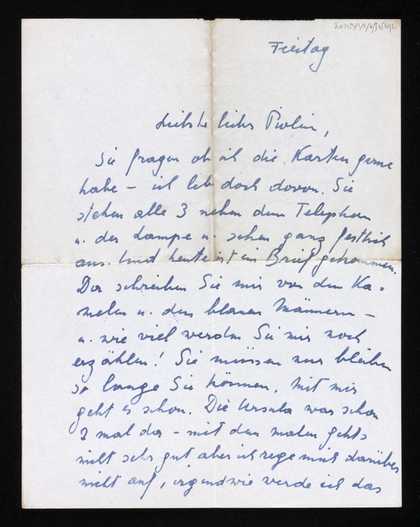 Freitag
Liebste liebes Piolin,
Sie fragen ob ich die Karten gerne
habe – ich leb doch davon. Sie
stehen alle 3 neben dem Telephon
u. der Lampe u. sehen ganz festlich
aus. Und heute ist ein Brief gekommen.
Da schreiben Sie mir von den Ka-
melen u. den blauen Männern –
u. wie viel werden Sie mir noch
erzählen! Sie müssen nur bleiben
so lange Sie können, mit mir
geht es schon. Die Ursula war schon
2 mal da – mit dem malen gehts
nicht sehr gut aber ich rege mich darüber
nicht auf, irgendwie werde ich das